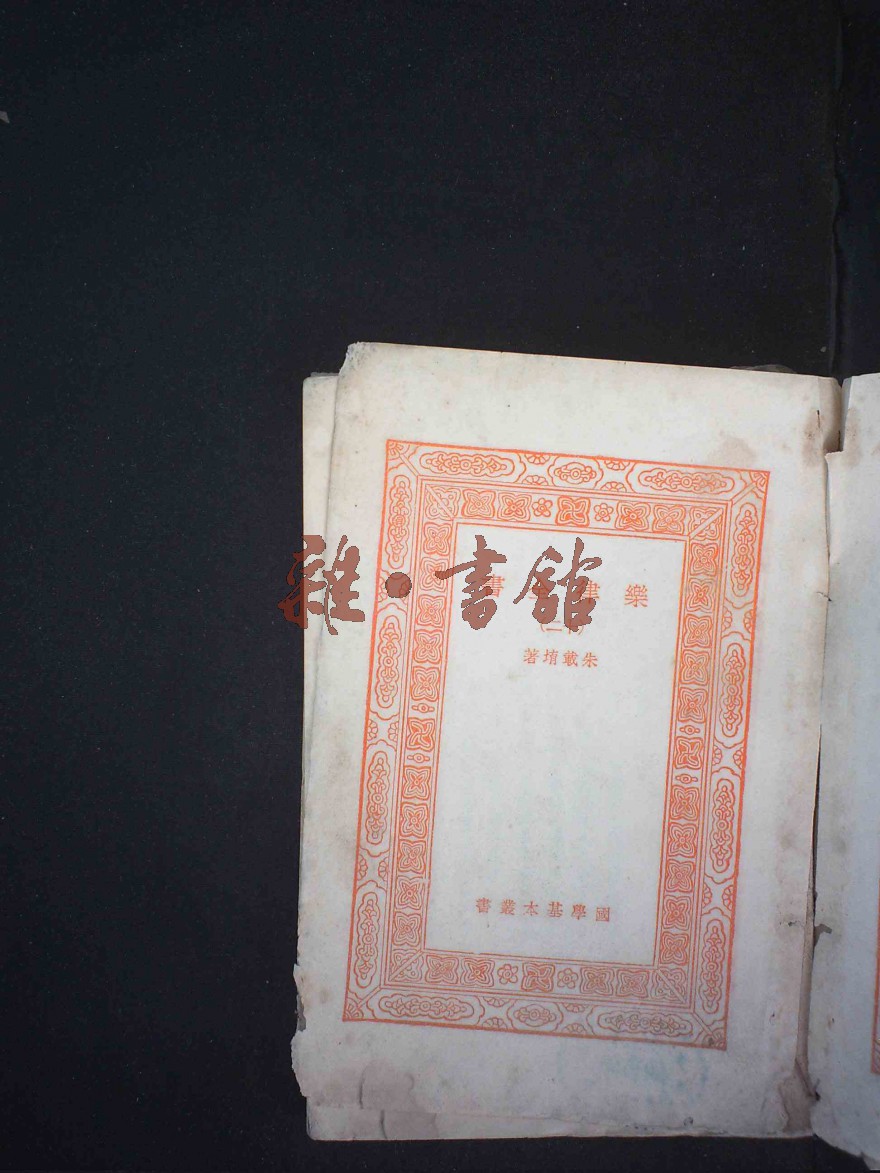 樂律全書
雜·書館
朱載堉著
國學基本叢書